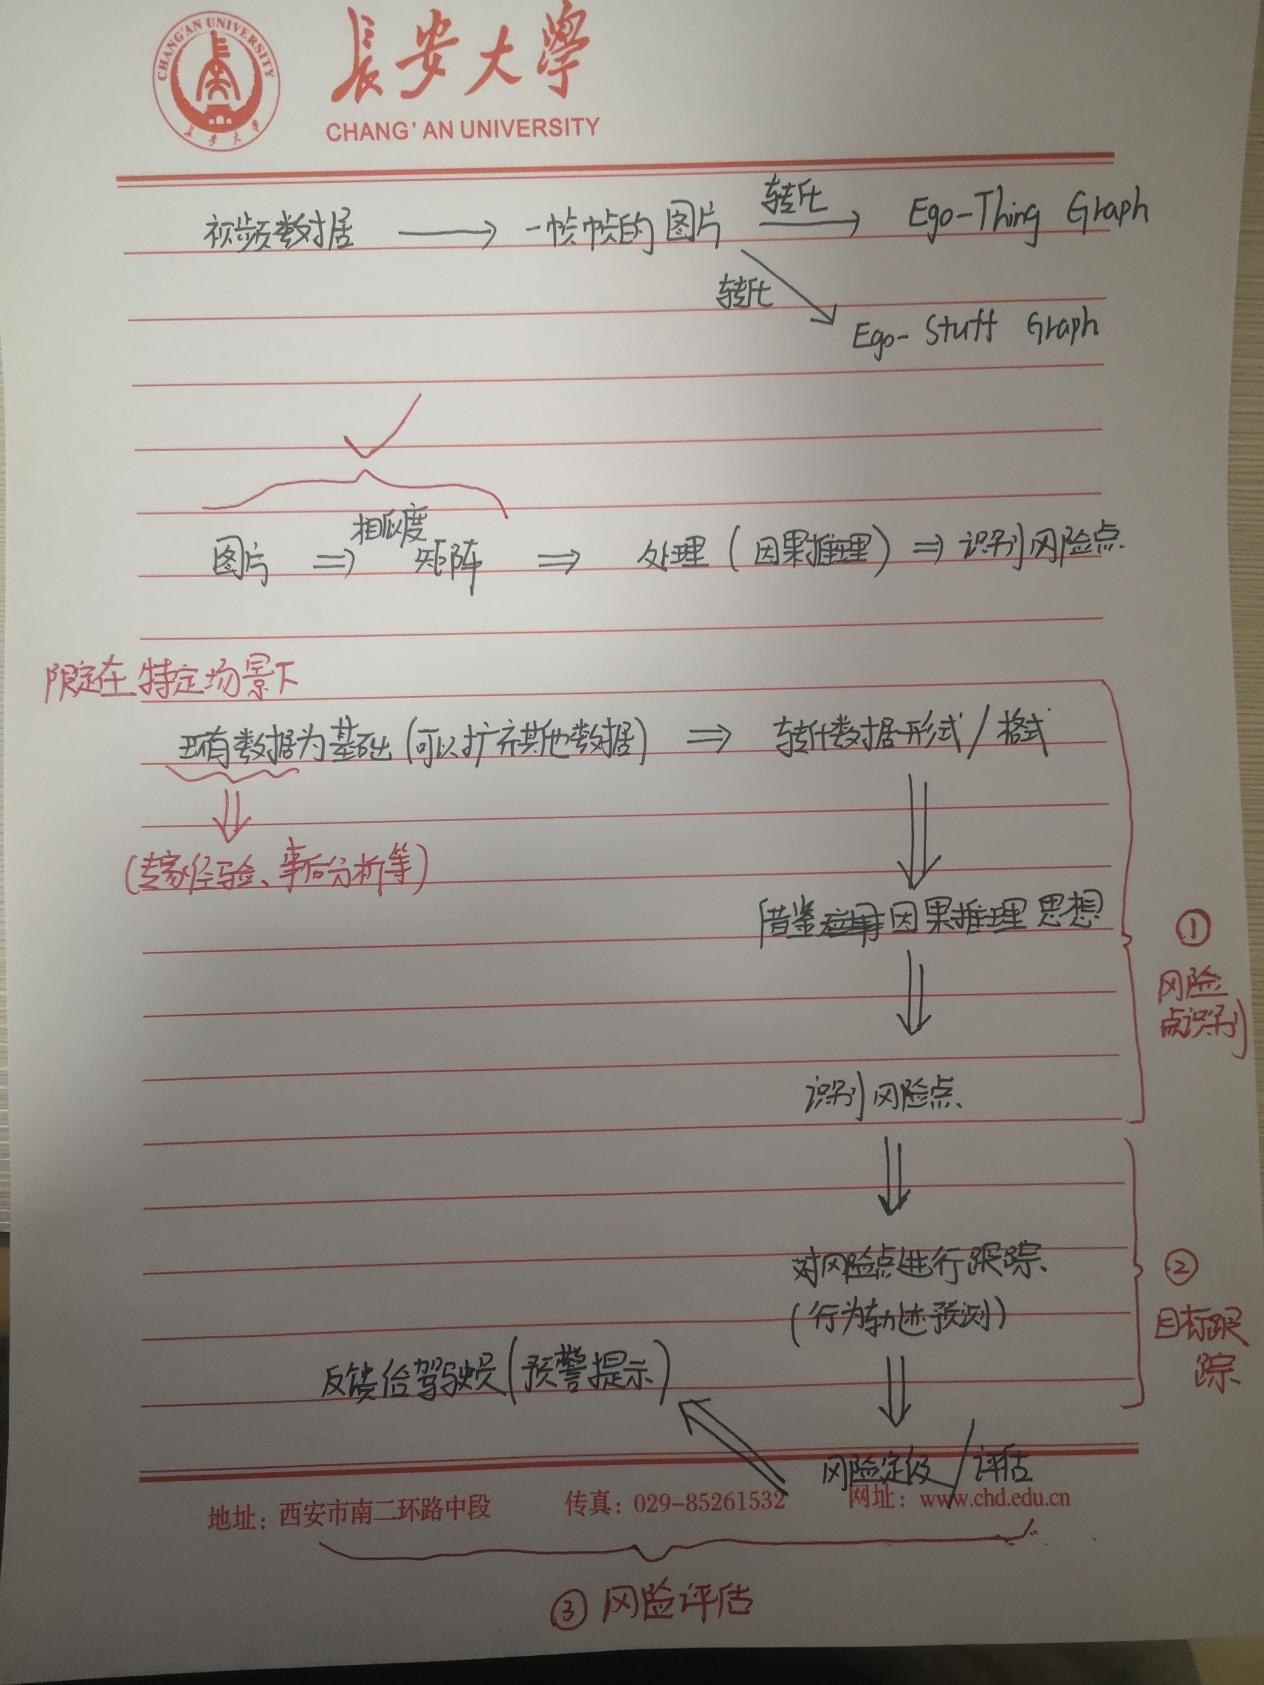 CHANG'AN UNIVERSITY
長安大學
長安大學
CHANG'AN UNIVERSITY
视频数据 → 一帧帧的图片 转化 → Ego-Thing Graph
转化 Ego-Stuff Graph
相似度
图片 ⇒ 矩阵 ⇒ 处理(因果推理) ⇒ 识别风险点.
限定在特定场景下
现有数据为基础(可以扩充其他数据) ⇒ 转化数据形式/格式
(专家经验、事后分析等)
借鉴 因果推理思想
①
风险
点识别
识别风险点、
对风险点进行跟踪、
(行为轨迹预测)
②
目标跟
踪
反馈给驾驶员(预警提示)
风险定级/评估
地址：西安市南二环路中段 传真：029-85261532 网址：www.chd.edu.cn
③ 风险评估